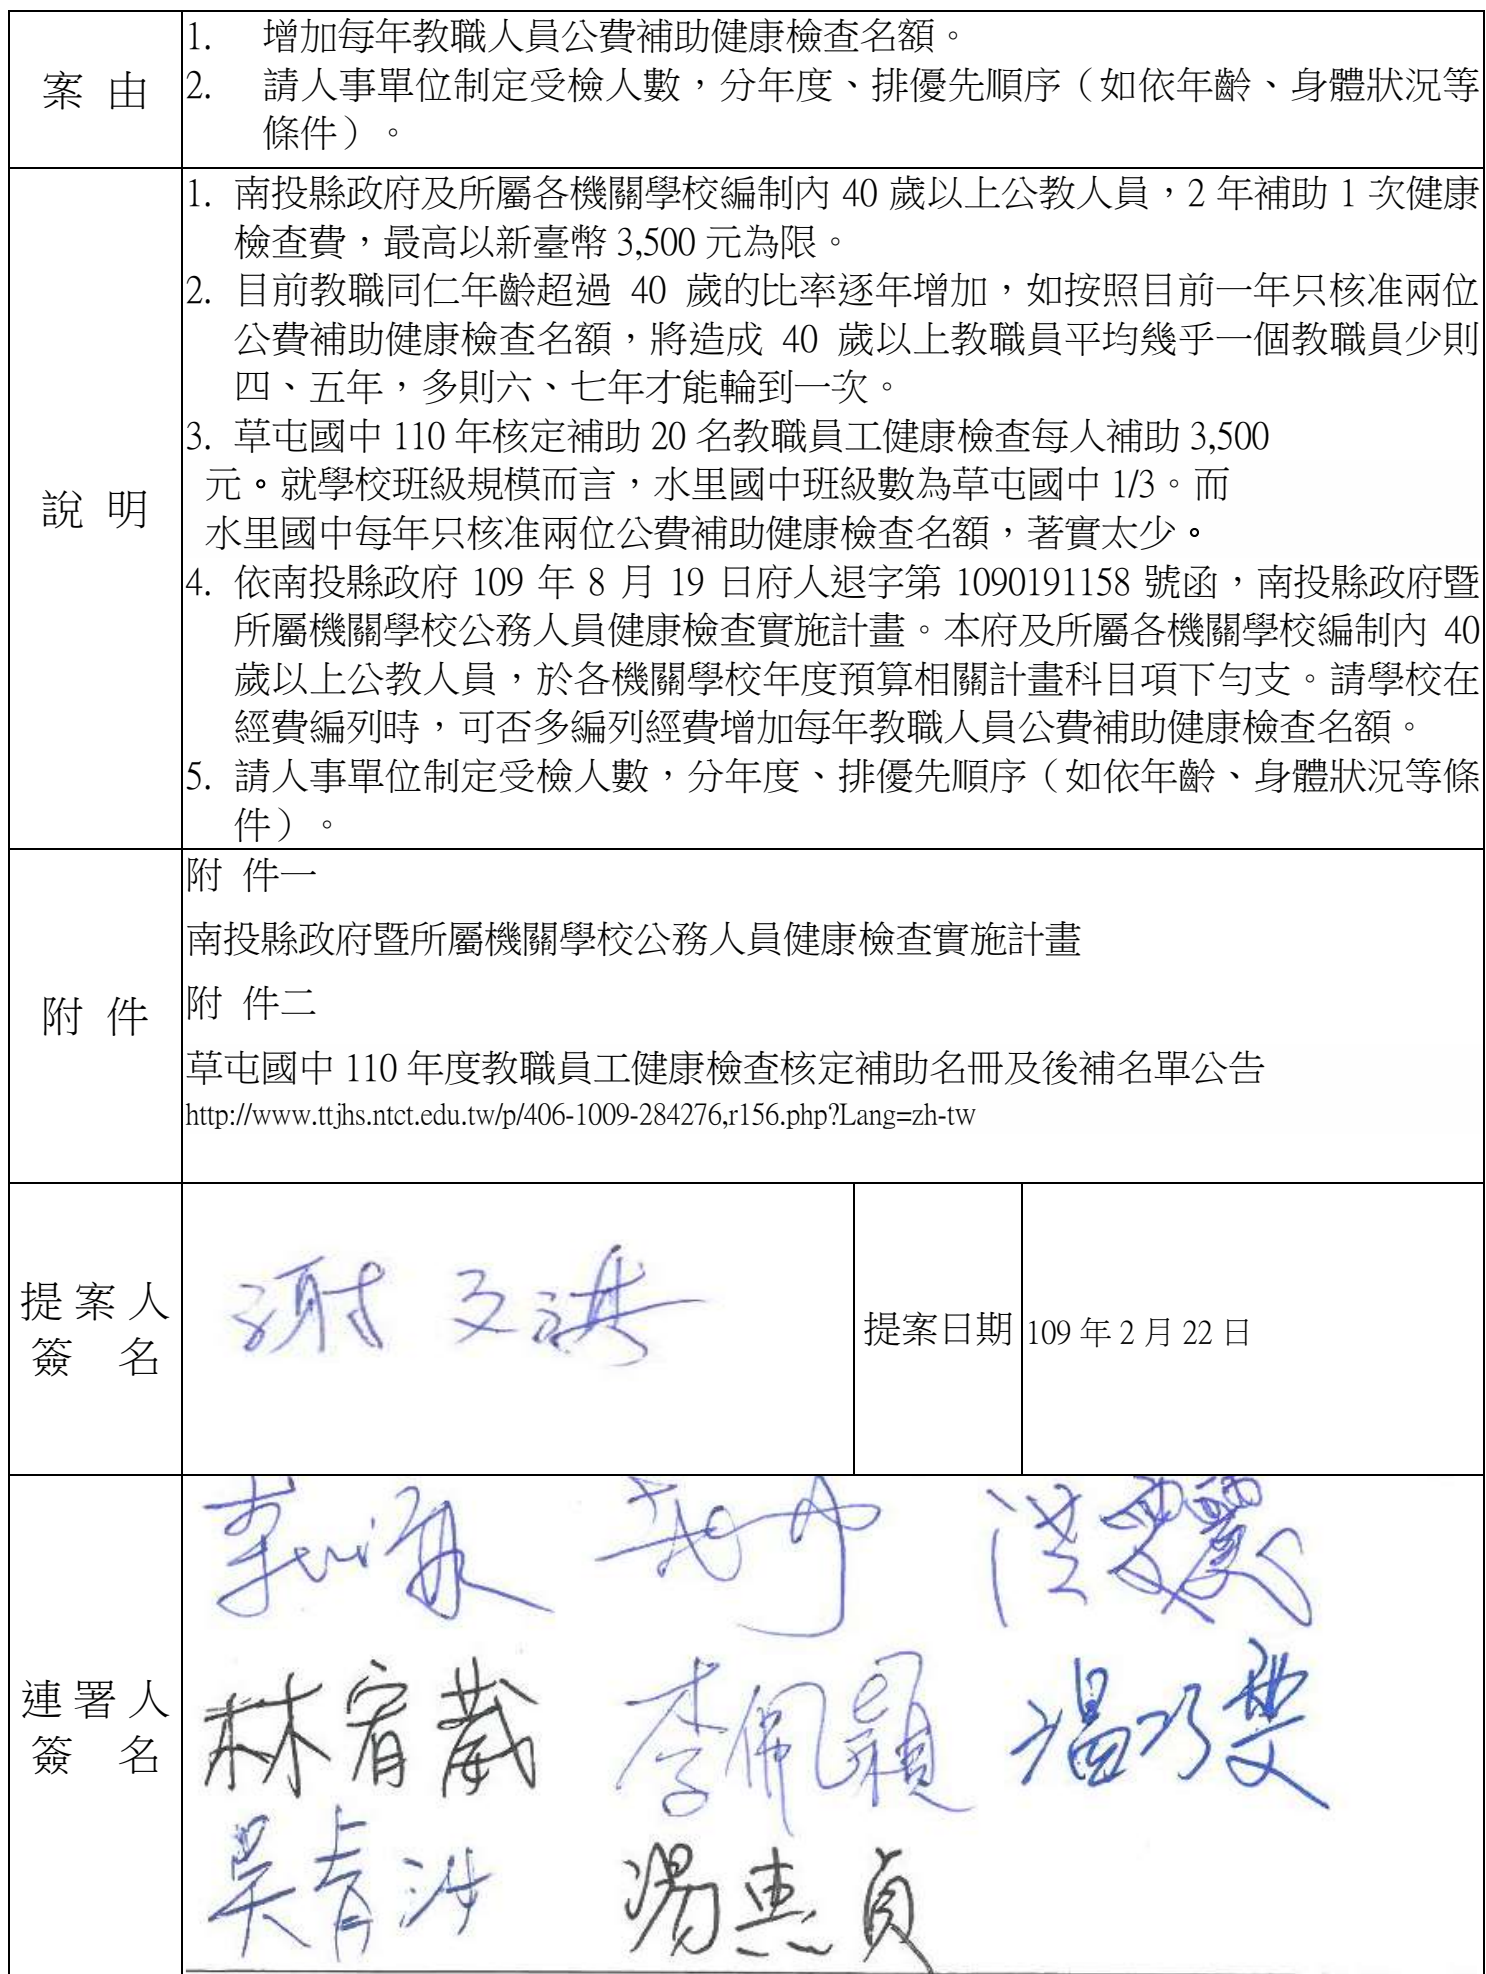 案 由
1. 增加每年教職人員公費補助健康檢查名額。
2. 請人事單位制定受檢人數，分年度、排優先順序（如依年齡、身體狀況等
條件）。
說 明
1. 南投縣政府及所屬各機關學校編制內 40 歲以上公教人員，2 年補助 1 次健康
檢查費，最高以新臺幣 3,500 元為限。
2. 目前教職同仁年齡超過 40 歲的比率逐年增加，如按照目前一年只核准兩位
公費補助健康檢查名額，將造成 40 歲以上教職員平均幾乎一個教職員少則
四、五年，多則六、七年才能輪到一次。
3. 草屯國中 110 年核定補助 20 名教職員工健康檢查每人補助 3,500
元。就學校班級規模而言，水里國中班級數為草屯國中 1/3。而
水里國中每年只核准兩位公費補助健康檢查名額，著實太少。
4. 依南投縣政府 109 年 8 月 19 日府人退字第 1090191158 號函，南投縣政府暨
所屬機關學校公務人員健康檢查實施計畫。本府及所屬各機關學校編制內 40
歲以上公教人員，於各機關學校年度預算相關計畫科目項下勻支。請學校在
經費編列時，可否多編列經費增加每年教職人員公費補助健康檢查名額。
5. 請人事單位制定受檢人數，分年度、排優先順序（如依年齡、身體狀況等條
件）。
附 件
附 件一
南投縣政府暨所屬機關學校公務人員健康檢查實施計畫
附 件二
草屯國中 110 年度教職員工健康檢查核定補助名冊及後補名單公告
http://www.ttjhs.ntct.edu.tw/p/406-1009-284276,r156.php?Lang=zh-tw
提案人
簽 名
謝文
提案日期
109 年 2 月 22 日
連署人
簽 名
林宥葳 李佩穎 湯乃雯
吳青 湯惠貞